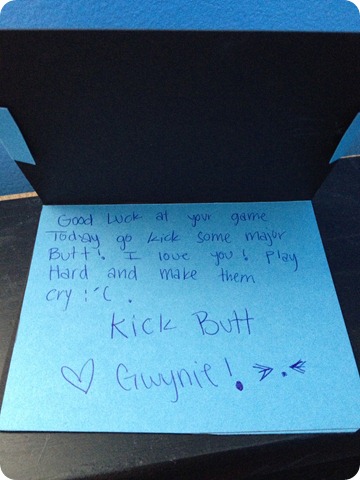 Good Luck at your game
Today go kick some major
Butt! I love you! Play
Hard and make them
cry :'( .
Kick Butt
♡ Gwynie! >.<